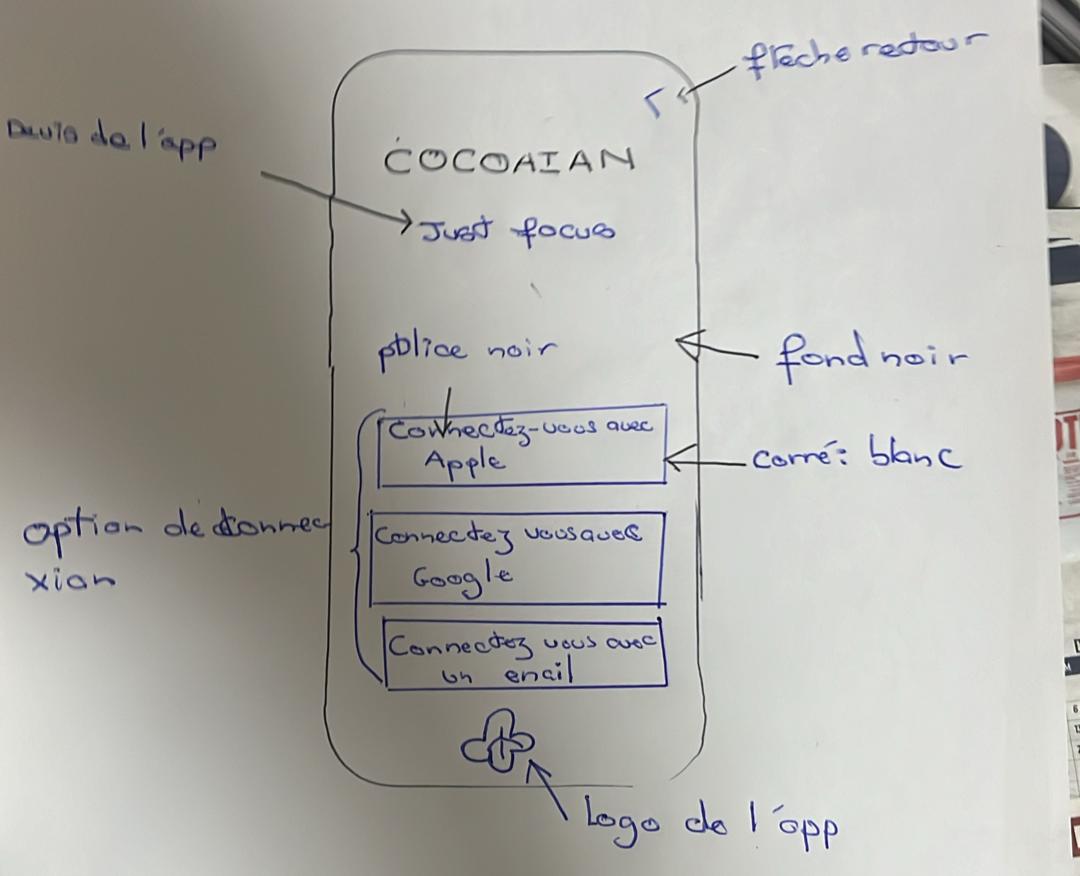 flèche retour
Devis de l'app
COCOAIAN
Just focus
police noir
fond noir
Connectez-vous avec
Apple
carré: blanc
option de connec
xion
Connectez vous avec
Google
Connectez vous avec
un email
Logo de l'app